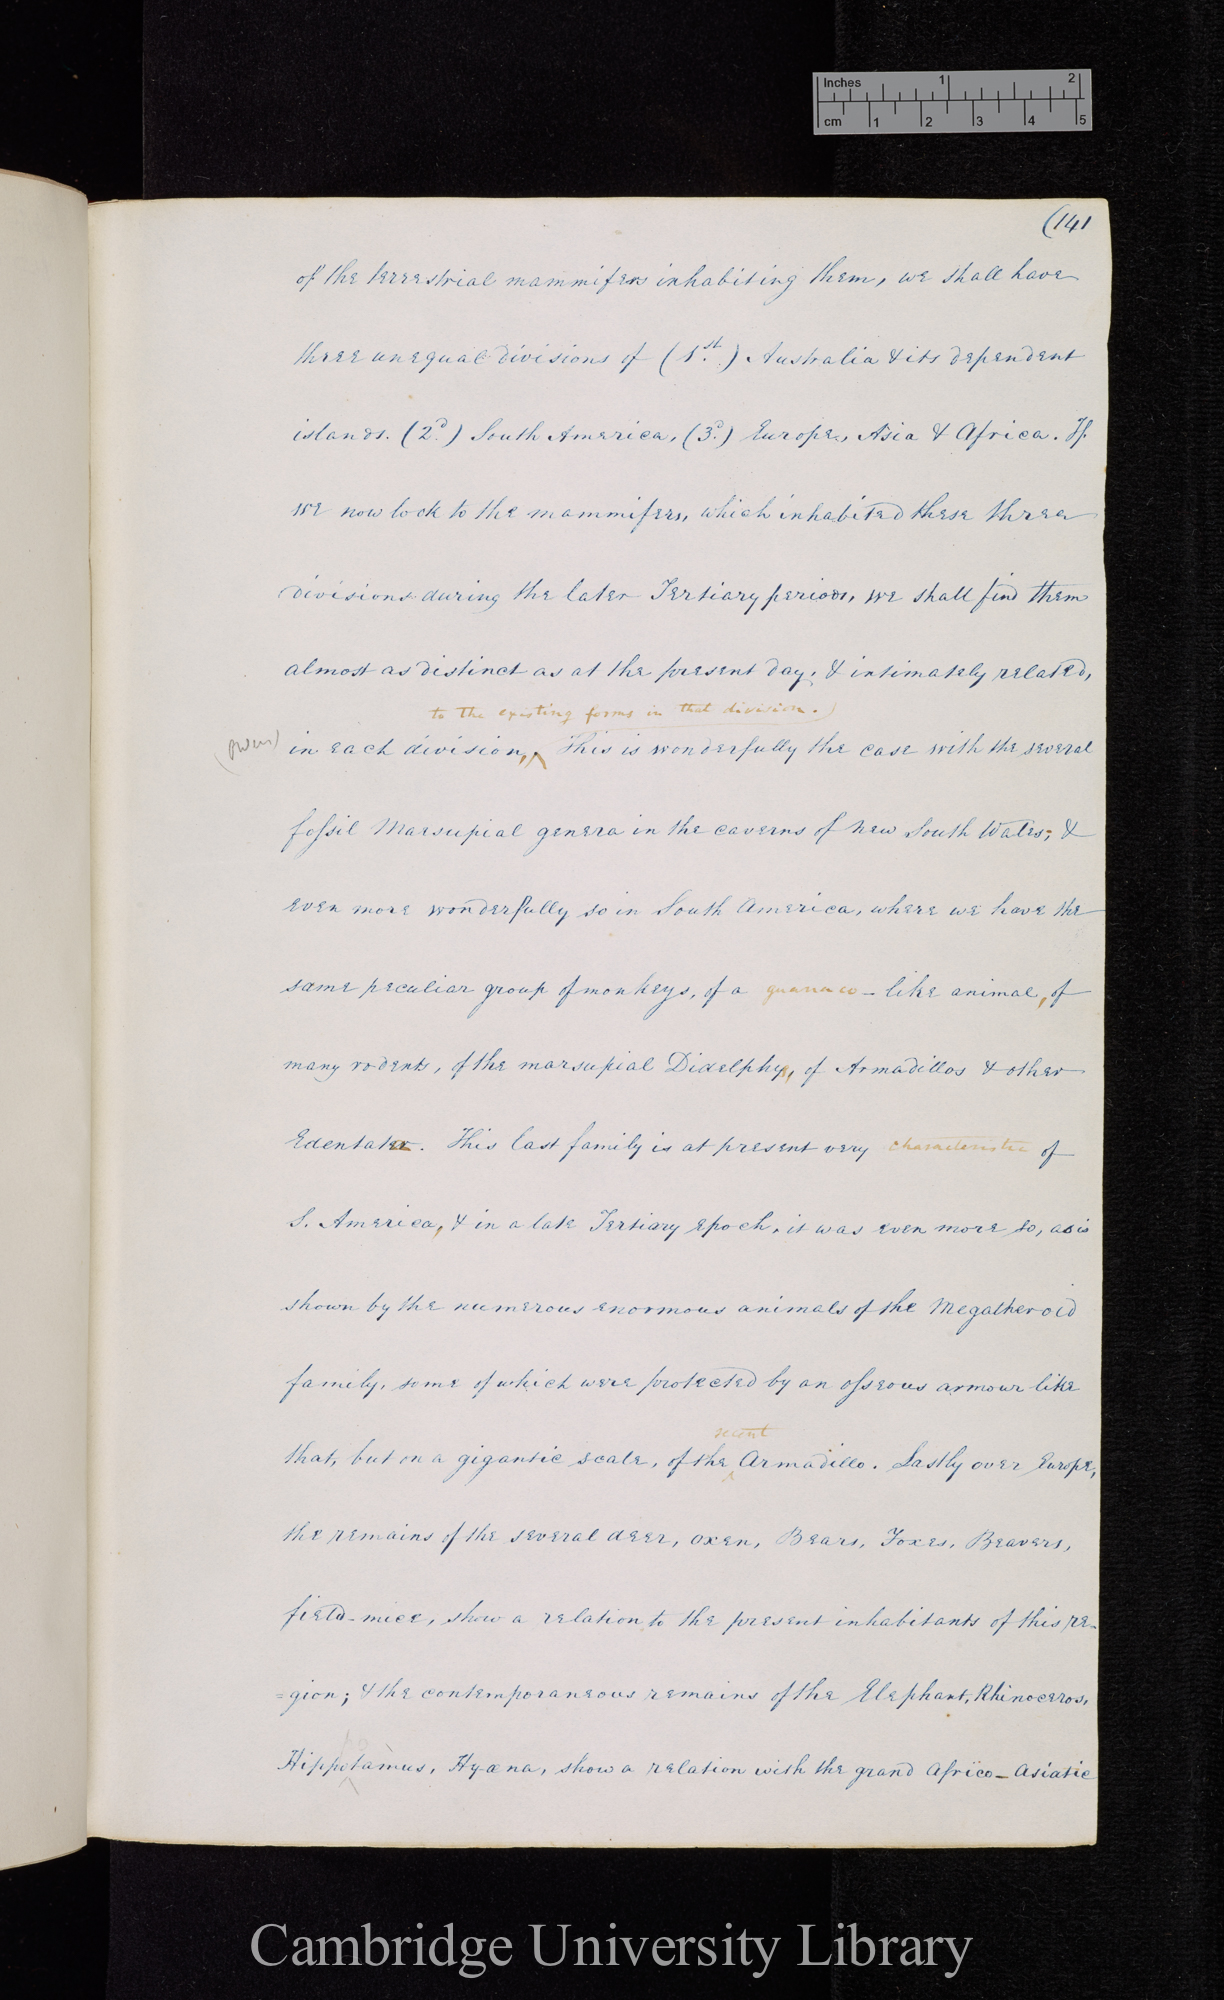 Inches 1 2
cm 1 2 3 4 5
(141
of the terrestrial mammifers inhabiting them, we shall have
three unequal divisions of (1.st) Australia & its dependent
islands. (2.d) South America, (3.d) Europe, Asia & Africa. If
we now look to the mammifers, which inhabited these three
divisions during the later Tertiary periods, we shall find them
almost as distinct as at the present day, & intimately related,
to the existing forms in that division.)
(Owen) in each division, ^ This is wonderfully the case with the several
fossil Marsupial genera in the caverns of New South Wales; &
even more wonderfully so in South America, where we have the
same peculiar group of monkeys, of a guanaco-like animal, of
many rodents, of the marsupial Didelphys, of Armadillos & other
Edentatae. This last family is at present very characteristic of
S. America, & in a late Tertiary epoch, it was even more so, as is
shown by the numerous enormous animals of the Megatheroid
family, some of which were protected by an osseous armour like
recent
that, but on a gigantic scale, of the ^ Armadillo. Lastly over Europe,
the remains of the several deer, oxen, Bears, Foxes, Beavers,
field-mice, show a relation to the present inhabitants of this re-
=gion; & the contemporaneous remains of the Elephant, Rhinoceros,
po
Hippotamus, Hyæna, show a relation with the grand Africo-Asiatic
Cambridge University Library